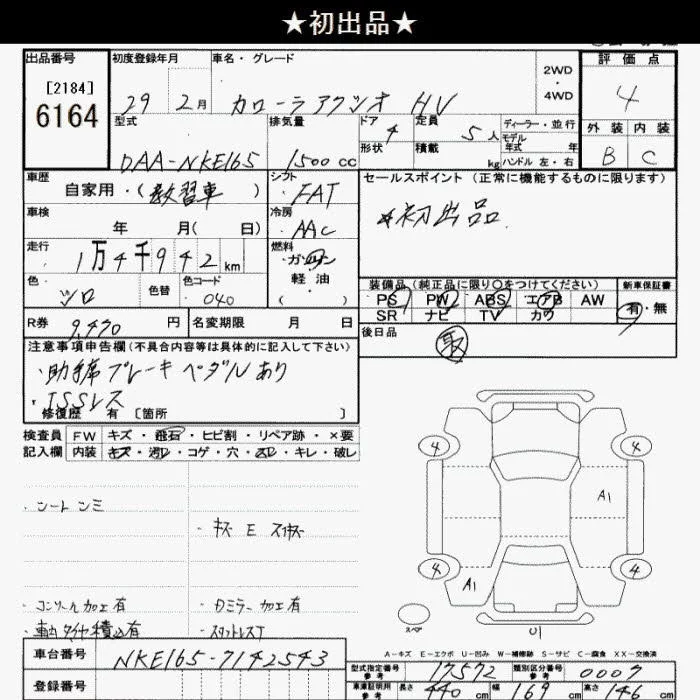 ★初出品★
出品番号
[2184]
6164
初度登録年月
29 2月
車名・グレード
カローラアクシオ HV
2WD
・
4WD
評価点
4
外装 内装
B C
型式
DAA-NKE165
排気量
1500 cc
ドア
4
定員
5人
形状
積載
kg
ディーラー・並行
モデル
年式 年
ハンドル 左・右
車歴
自家用・(教習車)
シフト
FAT
セールスポイント(正常に機能するものに限ります)
初出品
車検
年 月( 日)
冷房
AAC
走行
1万4千942km
燃料
ガソリン
軽油
( )
色
シロ
色替
色コード
040
装備品(純正品に限り○をつけてください)
PS PW ABS エアB AW
SR ナビ TV カワ
新車保証書
有・無
R券
9,470円
名変期限 月 日
後日品
取
注意事項申告欄(不具合内容等は具体的に記入して下さい)
・助手席ブレーキペダルあり
・ISSレス
修復歴 有 [箇所 ]
検査員
記入欄
FW キズ・飛石・ヒビ割・リペア跡・×要
内装 キズ・汚レ・コゲ・穴・スレ・キレ・破レ
・シートシミ
・キズ E スリキズ
・コンソール加工有
・車内タイヤ積込有
・Dミラー加工有
・スタットレスT
4
4
4
4
A1
A1
U1
スペア
A-キズ E-エクボ U-凹み W-補修跡 S-サビ C-腐食 XX-交換済
車台番号
NKE165-7142543
登録番号
型式指定番号
参考
17572
類別区分番号
参考
0007
車庫証明用
参考
長さ 440cm
幅 169cm
高さ 146cm